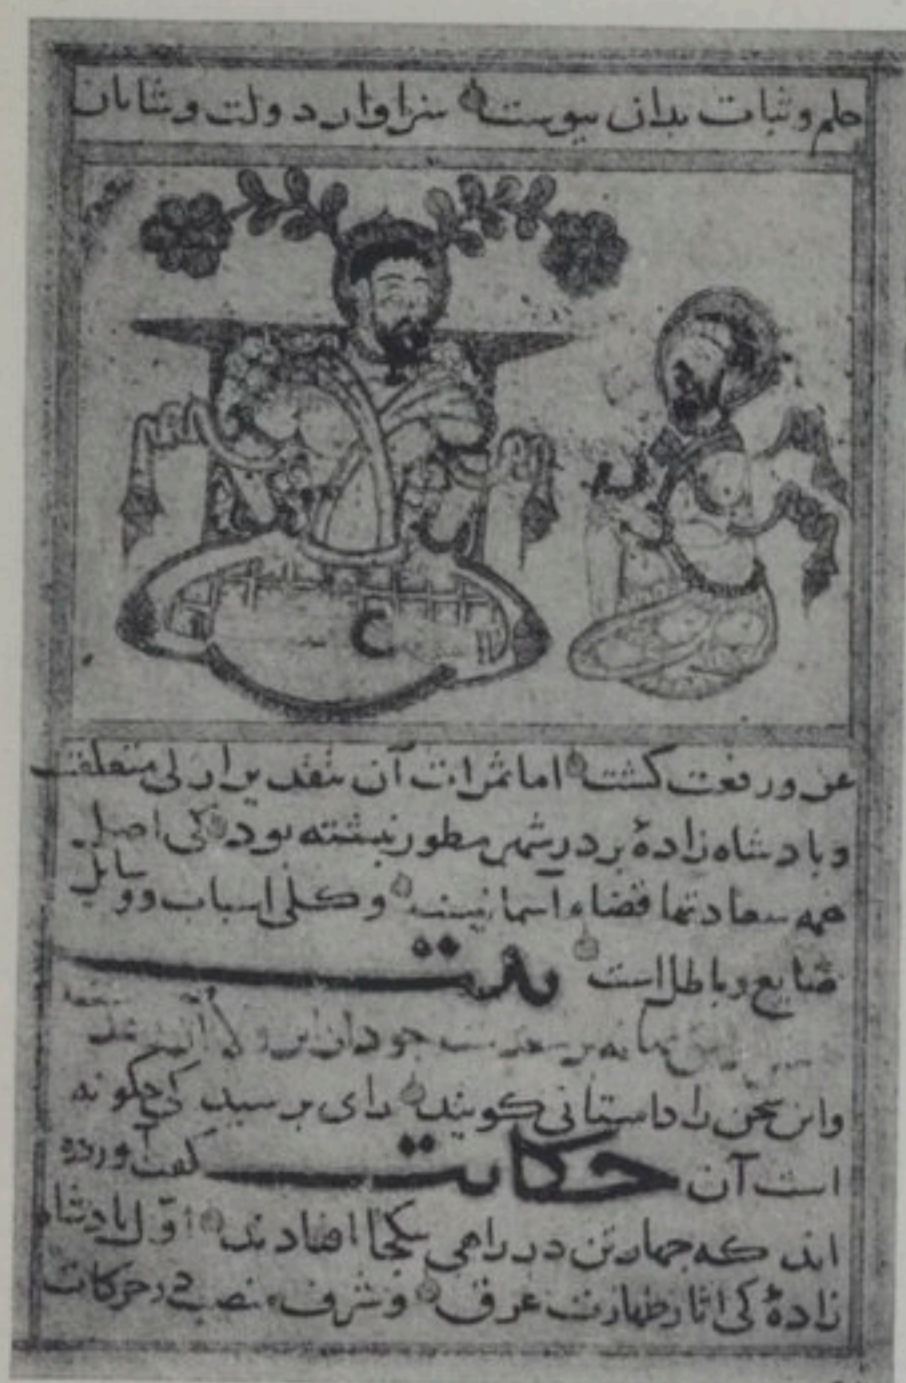 حلم و ثبات بدان پیوست سزاوار دولت و شایان
عز و رفعت کشت اما ثمرات آن بتقدیر ازلی متعلقت
و بادشاه زاده بر در شهر مطور نبشته بود کی اصل
همه سعادتها قضاء اسمانیست و کلی اسباب و وسایل
ضایع و باطل است بیت
واین سخن را داستانی کویند رای برسید کی چکونه
است آن حکایت کفت آورده
اند که جهار تن در راهی یکجا افتادند اول بادشاه
زادهٔ کی اثار طهارت عرق و شرف منصب در حرکات